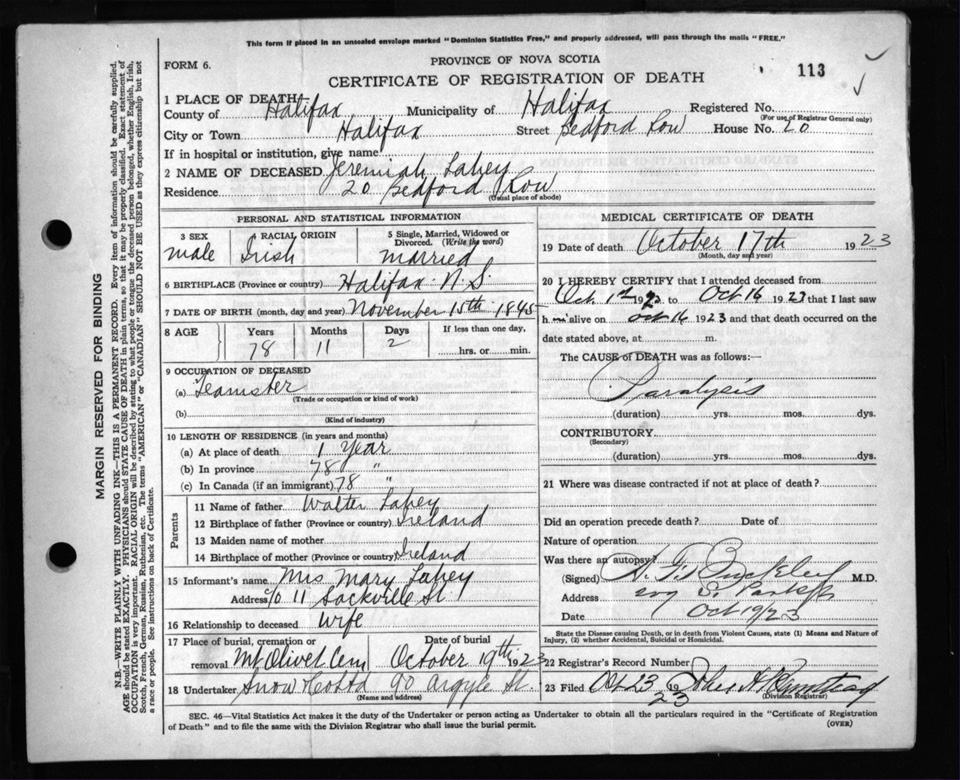 This form if placed in an unsealed envelope marked "Dominion Statistics Free," and properly addressed, will pass through the mails "FREE."
FORM 6.
PROVINCE OF NOVA SCOTIA
CERTIFICATE OF REGISTRATION OF DEATH
113
1 PLACE OF DEATH
County of Halifax Municipality of Halifax Registered No.
(For use of Registrar General only)
City or Town Halifax Street Bedford Row House No. 20
If in hospital or institution, give name
2 NAME OF DECEASED Jeremiah Lahey
Residence 20 Bedford Row
(Usual place of abode)
PERSONAL AND STATISTICAL INFORMATION
3 SEX 4 RACIAL ORIGIN 5 Single, Married, Widowed or Divorced. (Write the word)
male Irish married
6 BIRTHPLACE (Province or country) Halifax N.S.
7 DATE OF BIRTH (month, day and year) November 15th 1845
8 AGE Years Months Days If less than one day,
78 11 2 hrs. or min.
9 OCCUPATION OF DECEASED
(a) Teamster
(Trade or occupation or kind of work)
(b)
(Kind of industry)
10 LENGTH OF RESIDENCE (in years and months)
(a) At place of death 1 Year
(b) In province 78 "
(c) In Canada (if an immigrant) 78 "
Parents
11 Name of father Walter Lahey
12 Birthplace of father (Province or country) Ireland
13 Maiden name of mother
14 Birthplace of mother (Province or country) Ireland
15 Informant's name Mrs Mary Lahey
Address c/o 11 Sackville St
16 Relationship to deceased wife
17 Place of burial, cremation or removal Mt Olivet Cem Date of burial October 19th 1923
18 Undertaker Snow & Co Ltd 90 Argyle St.
(Name and address)
MEDICAL CERTIFICATE OF DEATH
19 Date of death October 17th 1923
(Month, day and year)
20 I HEREBY CERTIFY that I attended deceased from
Oct 1st 192 to Oct 16 1923 that I last saw
h im alive on Oct 16 1923 and that death occurred on the
date stated above, at m.
The CAUSE of DEATH was as follows:—
Paralysis
(duration) yrs. mos. dys.
CONTRIBUTORY
(Secondary)
(duration) yrs. mos. dys.
21 Where was disease contracted if not at place of death?
Did an operation precede death? Date of
Nature of operation
Was there an autopsy?
(Signed) Buckley M.D.
Address S. Park St
Date Oct 19/23
State the Disease causing Death, or in death from Violent Causes, state (1) Means and Nature of
Injury, (2) whether Accidental, Suicidal or Homicidal.
22 Registrar's Record Number
23 Filed Oct 23 1923 John A
(Division Registrar)
SEC. 46—Vital Statistics Act makes it the duty of the Undertaker or person acting as Undertaker to obtain all the particulars required in the "Certificate of Registration
of Death" and to file the same with the Division Registrar who shall issue the burial permit.
(OVER)
MARGIN RESERVED FOR BINDING
N.B.—WRITE PLAINLY WITH UNFADING INK—THIS IS A PERMANENT RECORD. Every item of information should be carefully supplied.
AGE should be stated EXACTLY. PHYSICIANS should STATE CAUSE OF DEATH in plain terms, so that it may be properly classified. Exact statement of
OCCUPATION is very important. RACIAL ORIGIN will be described by stating to what people or tongue the deceased person belonged, whether English, Irish,
Scotch, French, German, Russian, Ruthenian, etc. The terms "AMERICAN" or "CANADIAN" SHOULD NOT BE USED as they express citizenship but not
a race or people. See instructions on back of Certificate.